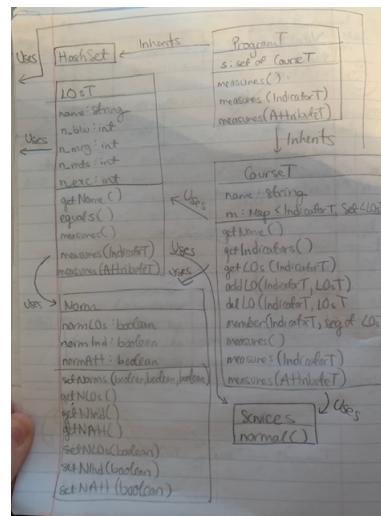 Uses
HashSet
Inherits
ProgramT
s: set of CourseT
measures()
measures(IndicatorT)
measures(AttributeT)
Inherits
LOsT
name: string
n_blw: int
n_mrg: int
n_mts: int
n_exc: int
getName()
equals()
measures()
measures(IndicatorT)
measures(AttributeT)
Uses
Uses
CourseT
name: string
m: Map <IndicatorT, Set<LOs
getName()
getIndicators()
getLOs(IndicatorT)
addLO(IndicatorT, LOsT
delLO(IndicatorT, LOsT
member(IndicatorT, seq of LOs
measures()
measures(IndicatorT)
measures(AttributeT)
Uses
Uses
Uses
Norm
normLOs: boolean
normInd: boolean
normAtt: boolean
setNorms(boolean, boolean, boolean)
getNLOs()
getNInd()
getNAtt()
setNLOs(boolean)
setNInd(boolean)
setNAtt(boolean)
Uses
Services
normal()